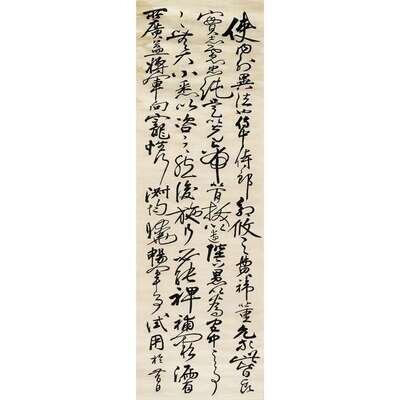 使內外異法也侍中侍郎郭攸之費禕董允等此皆良
實志慮忠純是以先帝簡拔以遺陛下愚以為宮中之事
事無大小悉以咨之然後施行必能裨補闕漏有
所廣益將軍向寵性行淑均曉暢軍事試用於昔日